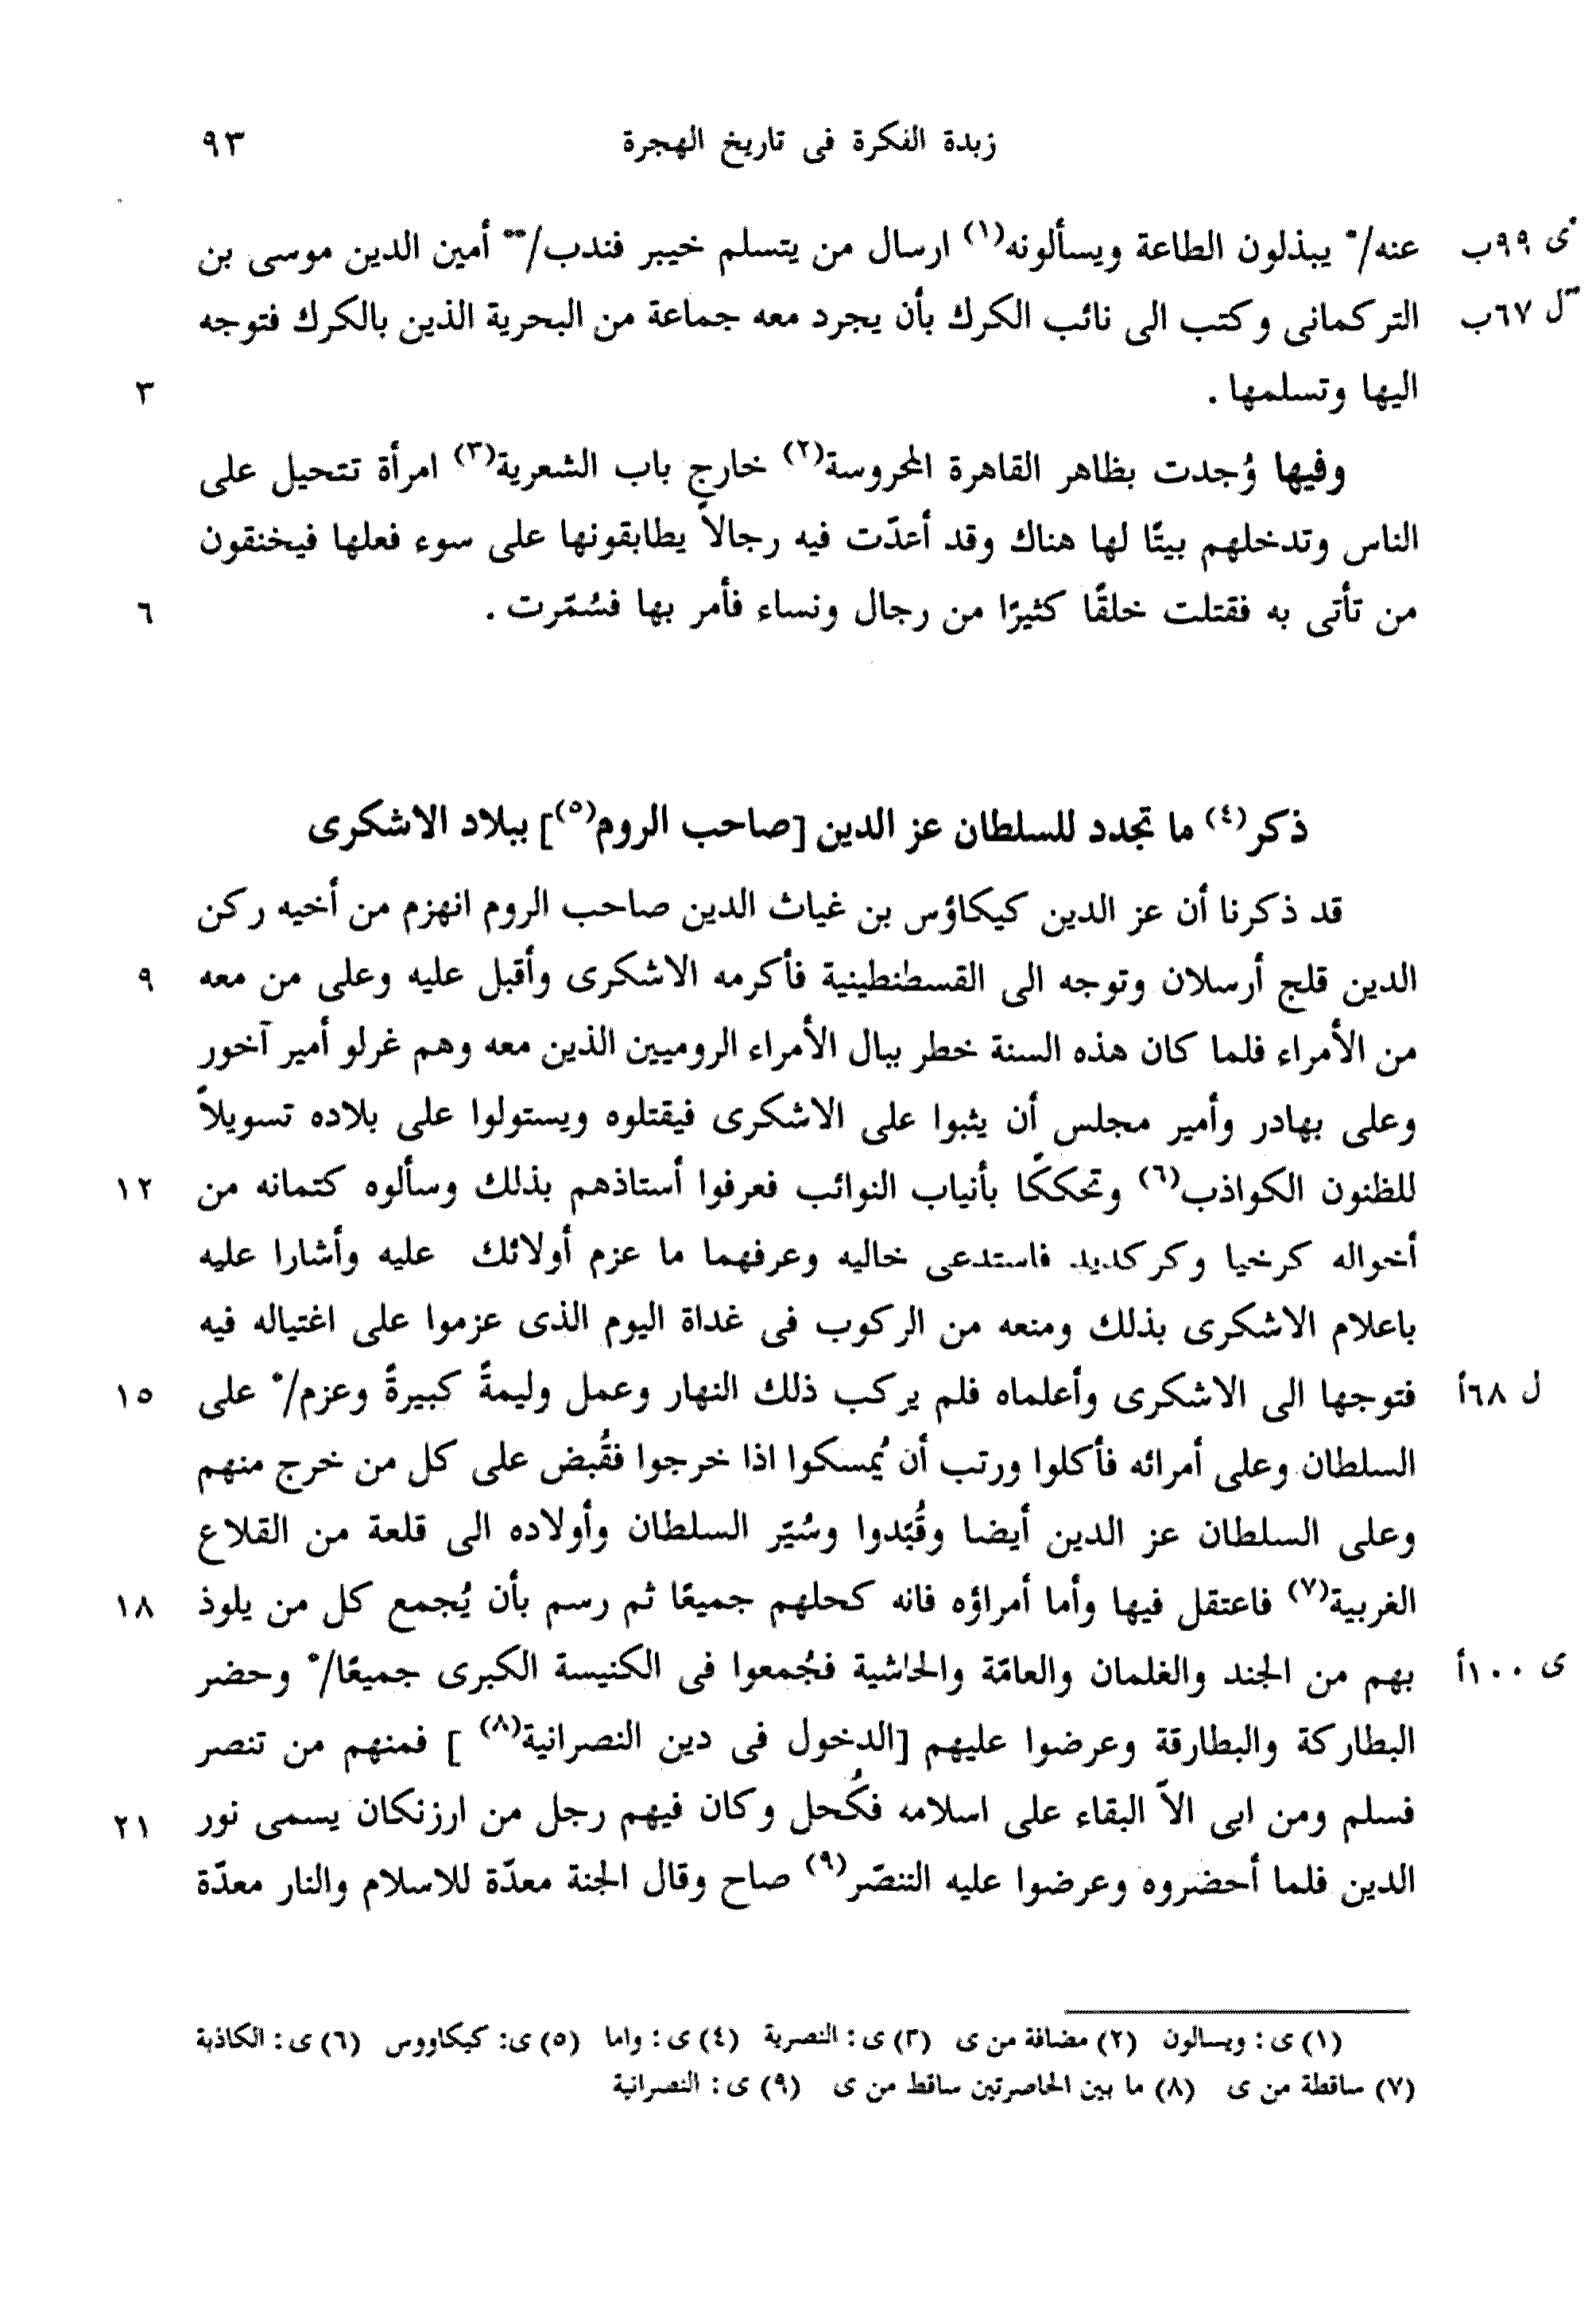 زبدة الفكرة فى تاريخ الهجرة ٩٣
*ى ٩٩ب عنه/* يبذلون الطاعة ويسألونه(١) ارسال من يتسلم خيبر فندب/** أمين الدين موسى بن
**ل ٦٧ب التركمانى وكتب الى نائب الكرك بأن يجرد معه جماعة من البحرية الذين بالكرك فتوجه
اليها وتسلمها . ٣
وفيها وُجدت بظاهر القاهرة المحروسة(٢) خارج باب الشعرية(٣) امرأة تتحيل على
الناس وتدخلهم بيتًا لها هناك وقد أعدّت فيه رجالاً يطابقونها على سوء فعلها فيخنقون
من تأتى به فقتلت خلقًا كثيرًا من رجال ونساء فأمر بها فسُمّرت . ٦
ذكر(٤) ما تجدد للسلطان عز الدين [صاحب الروم(٥)] ببلاد الاشكرى
قد ذكرنا أن عز الدين كيكاؤس بن غياث الدين صاحب الروم انهزم من أخيه ركن
الدين قلج أرسلان وتوجه الى القسطنطينية فأكرمه الاشكرى وأقبل عليه وعلى من معه ٩
من الأمراء فلما كان هذه السنة خطر ببال الأمراء الروميين الذين معه وهم غرلو أمير آخور
وعلى بهادر وأمير مجلس أن يثبوا على الاشكرى فيقتلوه ويستولوا على بلاده تسويلاً
للظنون الكواذب(٦) وتحككًا بأنياب النوائب فعرفوا أستاذهم بذلك وسألوه كتمانه من ١٢
أخواله كرخيا وكركديد فاستدعى خاليه وعرفهما ما عزم أولائك عليه وأشارا عليه
باعلام الاشكرى بذلك ومنعه من الركوب فى غداة اليوم الذى عزموا على اغتياله فيه
ل ٦٨أ فتوجها الى الاشكرى وأعلماه فلم يركب ذلك النهار وعمل وليمةً كبيرةً وعزم/* على ١٥
السلطان وعلى أمرائه فأكلوا ورتب أن يُمسكوا اذا خرجوا فقُبض على كل من خرج منهم
وعلى السلطان عز الدين أيضا وقُيّدوا وسُيّر السلطان وأولاده الى قلعة من القلاع
الغربية(٧) فاعتقل فيها وأما أمراؤه فانه كحلهم جميعًا ثم رسم بأن يُجمع كل من يلوذ ١٨
ى ١٠٠أ بهم من الجند والغلمان والعامّة والحاشية فجُمعوا فى الكنيسة الكبرى جميعًا/* وحضر
البطاركة والبطارقة وعرضوا عليهم [الدخول فى دين النصرانية(٨) ] فمنهم من تنصر
فسلم ومن ابى الاّ البقاء على اسلامه فكُحل وكان فيهم رجل من ارزنكان يسمى نور ٢١
الدين فلما أحضروه وعرضوا عليه التنصّر(٩) صاح وقال الجنة معدّة للاسلام والنار معدّة
(١) ى : ويسالون (٢) مضافة من ى (٣) ى : النصرية (٤) ى : واما (٥) ى: كيكاووس (٦) ى : الكاذبة
(٧) ساقطة من ى (٨) ما بين الحاصرتين ساقط من ى (٩) ى : النصرانية